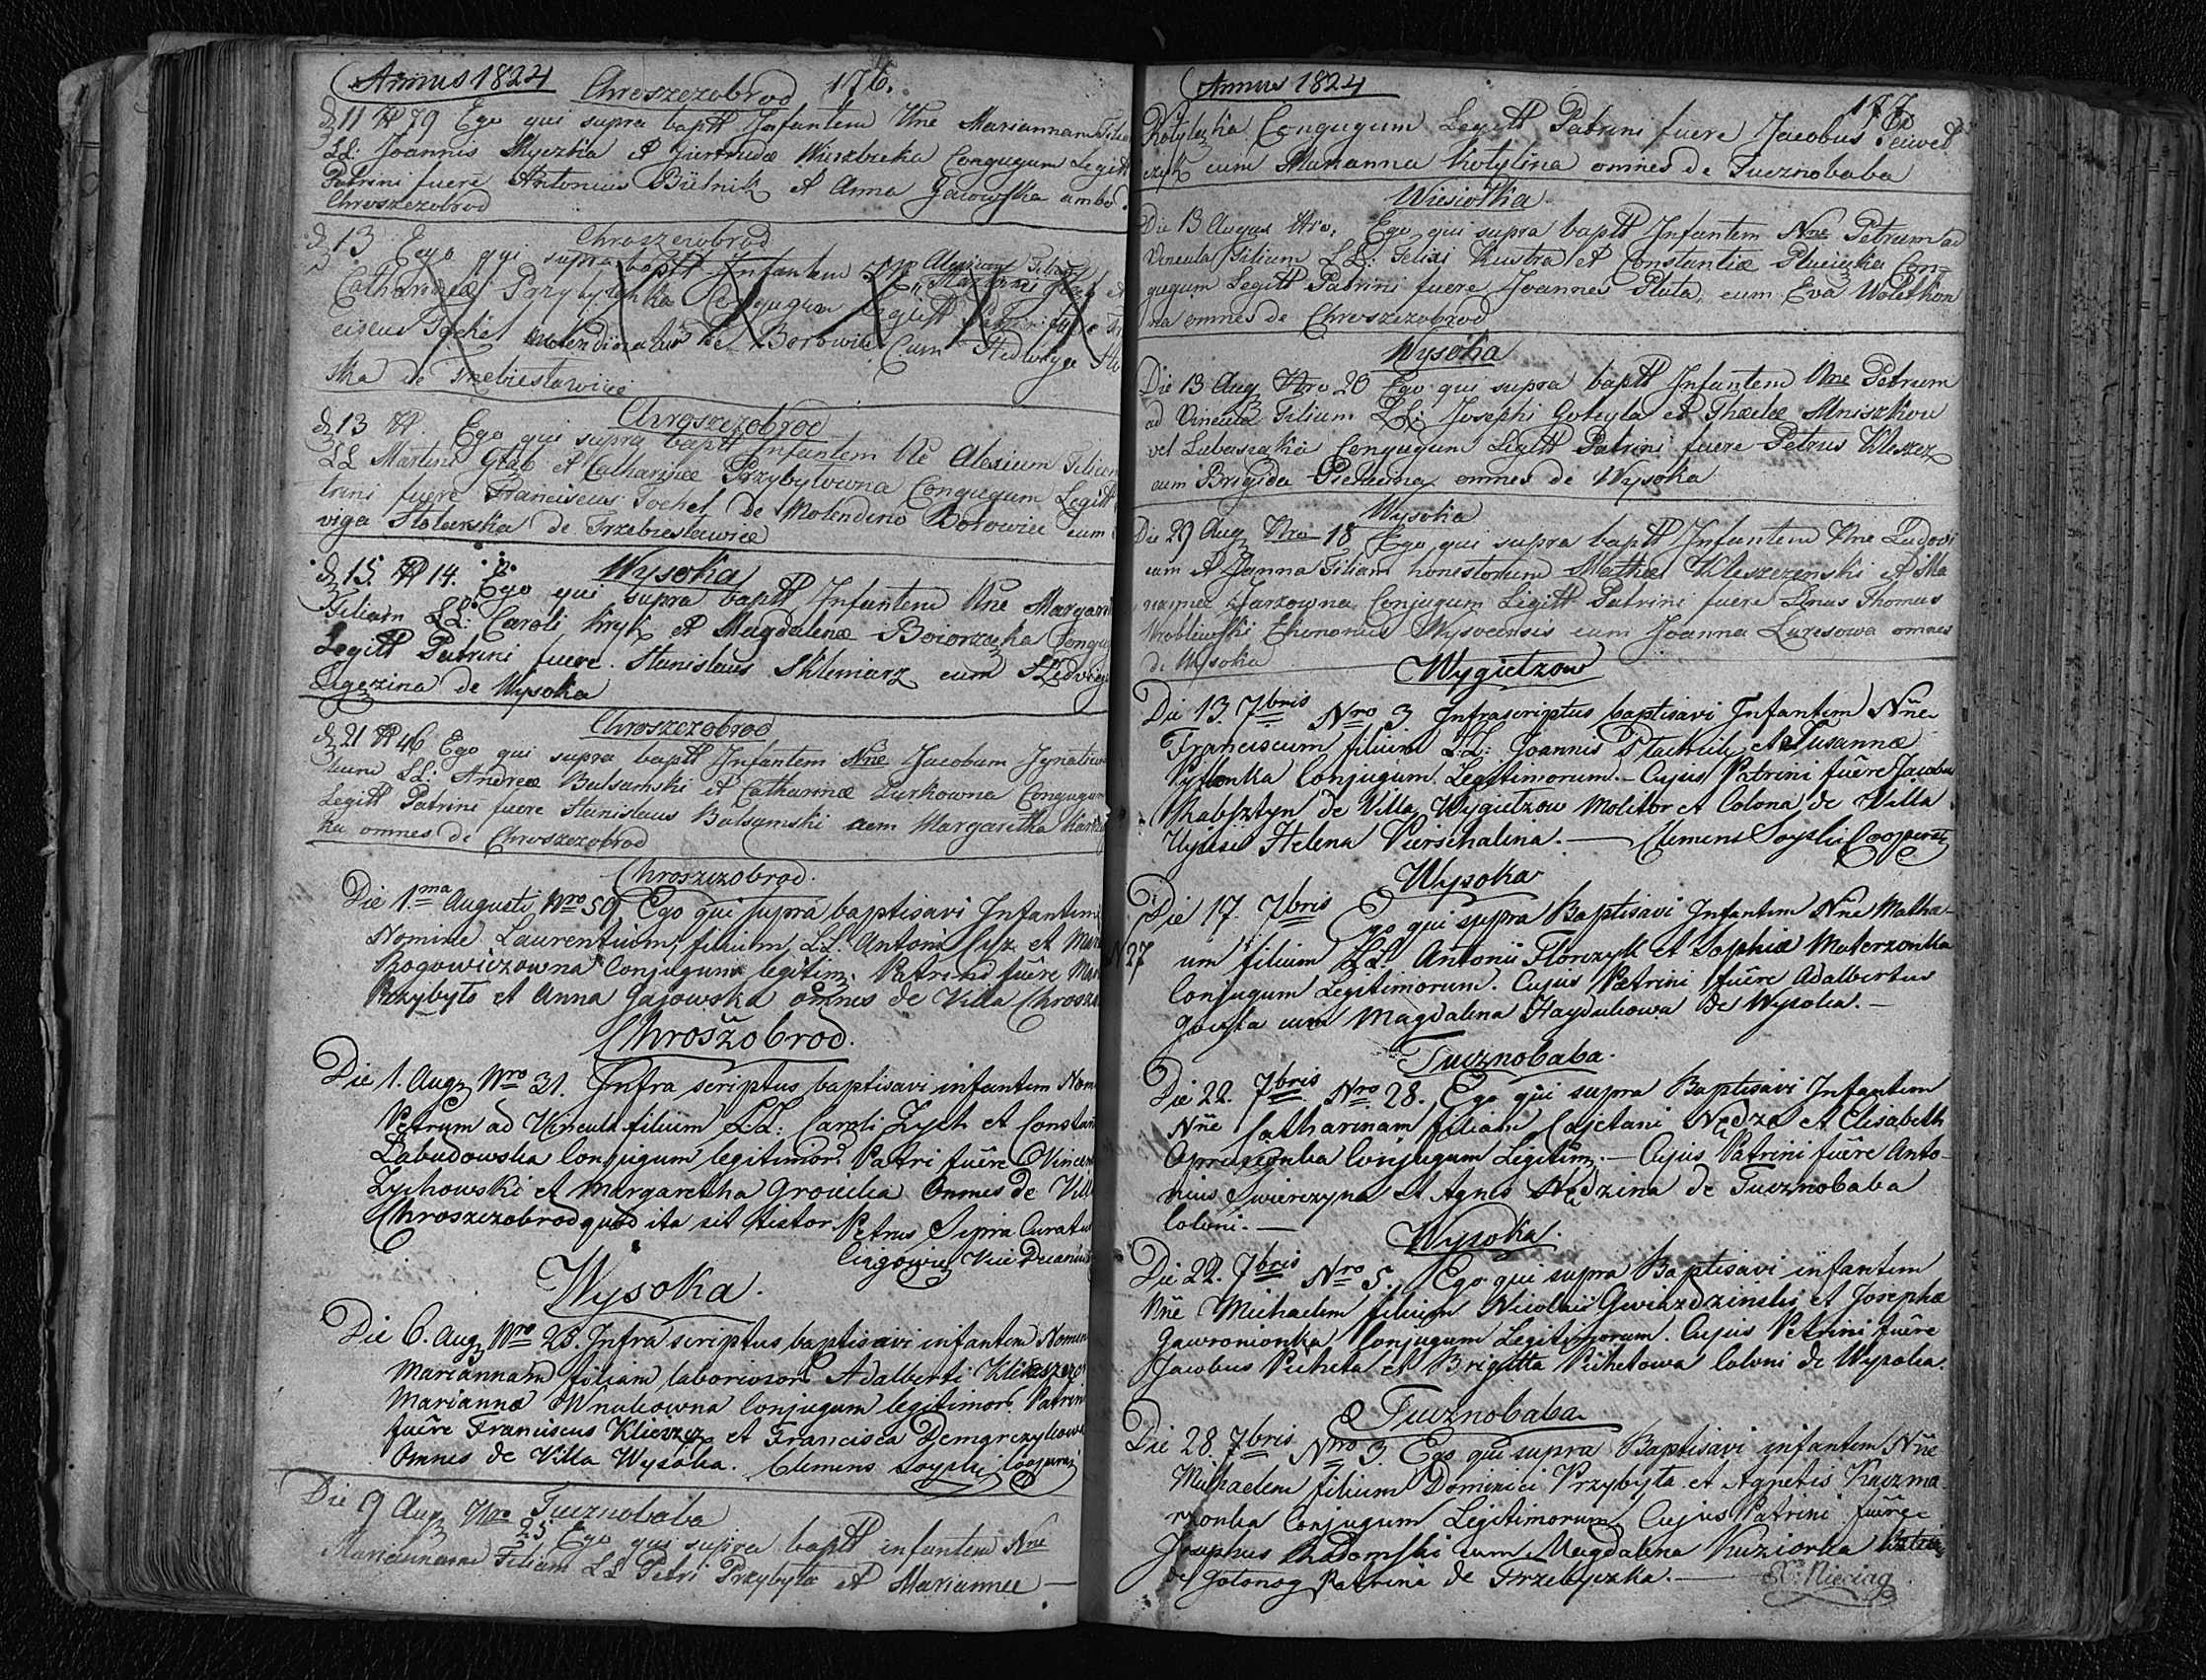 Annus 1824 Chroszczobrod 176.
d 11 N 79 Ego qui supra baptt Infantem Nne Mariannam Filia
LL: Joannis Myczka et Giertrudæ Wierzbicka Conjugum Legitt
Patrini fuere Antonius Bütnik et Anna Gaiowska ambo
Chroszczobrod
Chroszczobrod
d 13 Ego qui supra baptt Infantem Nne Alexium Filium
Martini Gląb et
Catharinæ Przybylonka Conjugum Legitt Patrini fuere Fr
ciscus Sochel molendinator de Borowiec Cum Hedwige Sto
ska de Trzebiesławice
Chroszczobrod
d 13 N. Ego qui supra baptt Infantem Nne Alexium Filium
LL Martini Gląb et Catharinæ Przybylowna Conjugum Legitt
trini fuere Franciscus Sochel de Molendino Borowiec cum
viga Stolarska de Trzebiesławice
Wysoka
d 15. N 14. Ego qui supra baptt Infantem Nne Margari
Filiam LL: Caroli Kryk et Magdalenæ Boiorzaska Conjug
Legitt Patrini fuere Stanislaus Skleniarz cum Hedvige
Ligęzina de Wysoka
Chroszczobrod
d 21 N 46 Ego qui supra baptt Infantem Nne Jacobum Ignatium
lium LL: Andreæ Balsamski et Catharinæ Lurkowna Conjugum
Legitt Patrini fuere Stanislaus Balsamski cum Margaretha
ka omnes de Chroszczobrod
Chroszczobrod.
Die 1.ma Augusti Nro 59 Ego qui supra baptisavi Infantem
Nomine Laurentium, filium LL. Antoni Cyz et Mari
Rogowiczowna Conjugum legitim. Patrini fuêre Mar
Przybyło et Anna Gajowska omnes de Villa Chroszcz
Chroszobrod.
Die 1. Aug Nro 31. Infra scriptus baptisavi infantem Nom
Petrum ad Vincula filium L.L: Caroli Zych et Constan
Labudowska Conjugum legitimor. Patri fuêre Vincen
Zychowski et Margaretha Groielia Omnes de Vill
Chroszczobrod quod ita sit testor. Petrus Sipra Curatus
Ciągowic Vice Decanus
Wysoka.
Die 6. Aug Nro 25. Infra scriptus baptisavi infantem Nomin
Mariannam filiam laboriosor Adalberti Klieszcz
Mariannæ Wnukowna Conjugum legitimor. Patrini
fuêre Franciscus Klieszcz et Francisca Demarczykow
Omnes de Villa Wysoka. Clemens Soyslu Cooperat
Tucznobaba
Die 9 Aug Nro 25 Ego qui supra baptt infantem Nne
Mariannam Filiam LL Petri Przybyła et Mariannæ
Annus 1824 177
Kotylazka Conjugum Legitt Patrini fuere Jacobus
czyk cum Marianna Kotylina omnes de Tucznobaba
Wiesiołka
Die 13 Augus Nro, Ego qui supra baptt Infantem Nne Petrum ad
Vincula Filium LL: Felixi Kustra et Constantiæ Pluciczka Con
jugum Legitt Patrini fuere Joannes Pluta, cum Eva Wolekow
na omnes de Chroszczobrod
Wysoka
Die 13 Aug Nro 20 Ego qui supra baptt Infantem Nne Petrum
ad Vincula Filium LL: Josephi Goteyla et Theclæ Mniszkow
vel Lubaszkia Conjugum Legitt Patrini fuere Petrus Kleszcz
cum Brigida Pienkna omnes de Wysoka
Wysoka
Die 29 Aug Nro 18 Ego qui supra baptt Infantem Nne Ludovi
cam et Joanna Filiam honestorum Mathæi Kleszczenski et Ma
riannæ Jarkowna Conjugum Legitt Patrini fuere Gnus Thomas
Wroblewski Ekonomus Wysocensis cum Joanna Luxesowa omnes
de Wysoka
Wygiełzow
Die 13. 7bris Nro 3 Infrascriptus baptisavi Infantem Nñe
Franciscum filium L:L: Joannis Stachuik et Susannæ
Pyflonka Conjugum Legitimorum. – Cujus Patrini fuêre Jacobus
Rabsztyn de Villa Wygiełzow Molitor et Colona de Villa
Ujeisce Helena Pierschalina. — Clemens Soyslu Cooperat
Wysoka
Die 17. 7bris Ego qui supra Baptisavi Infantem Nñe Mathæ-
N 27 um filium LL. Antonii Florczyk et Sophiæ Materzonka
Conjugum Legitimorum. Cujus Patrini fuêre Adalbertus
Gwizda cum Magdalena Haydukowa de Wysoka. –
Tucznobaba.
Die 22. 7bris Nro 28. Ego qui supra Baptisavi Infantem
Nñe Catharinam filiam Cajetani Nędza et Elisabeth
Oprusionka Conjugum Legitim. – Cujus Patrini fuêre Anto-
nius Swierczyna et Agnes Nędzina de Tucznobaba
Coloni. –
Wysoka.
Die 22. 7bris Nro 5. Ego qui supra Baptisavi infantem
Nñe Michaelem filium Nicolai Gwiazdzinski et Josephæ
Gawronionka Conjugum Legitimorum. Cujus Patrini fuêre
Jacobus Picheta et Brigitta Pichetowa Coloni de Wysoka.
Tucznobaba
Die 28 7bris Nro 3 Ego qui supra Baptisavi infantem Nñe
Michaelem filium Dominici Przybyła et Agnetis Kaczma
rzonka Conjugum Legitimorum, Cujus Patrini fuêre
Josephus Radomski cum Magdalena Kuziorka
de Gołonog Patrina de Trzebyczka. — X: Nieciąg